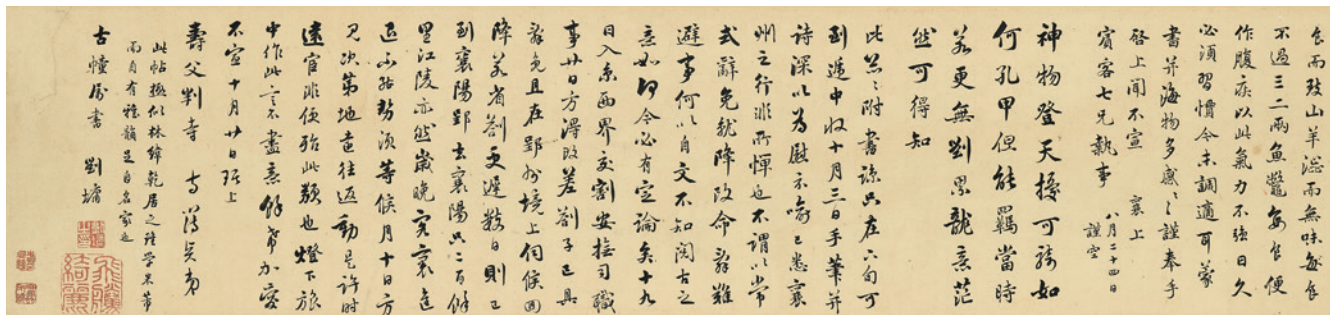 不過三二兩魚鱉每食便
作腹疾以此氣力不強日久
必須習慣今未調適耳蒙
書并海物多感々謹奉手
啓上聞不宣 襄上
賓客七兄執事 八月二十四日
謹空
神物登天擾可騎如
何孔甲但能羈當時
若更無劉累龍意茫
然可得知
附書諒只在六旬可
到遞中收十月三日手筆并
詩深以為慰示喻已悉襄
州之行非所憚也不謂以常
式辭免就降改命辭難
避事何以自文不知閱古之
意如何今必有定論矣十九
日入京西界交割安撫司職
事廿日方得改差劄子已具
辭免且在郢州境上伺候回
降若省劄更遲數日則已
到襄陽郢去襄陽只二百餘
里江陵亦然歲晚窮寒進
退不能勢須等候月十日方
見次第地遠往返動是許時
遠宦非便殆此類也燈下旅
中作此言不盡意餘希加愛
不宣十月廿日琚上
壽父判寺
此帖極似林緯乾居之雖學米芾
而自有穩韻足自名家也
古幢屬書 劉墉